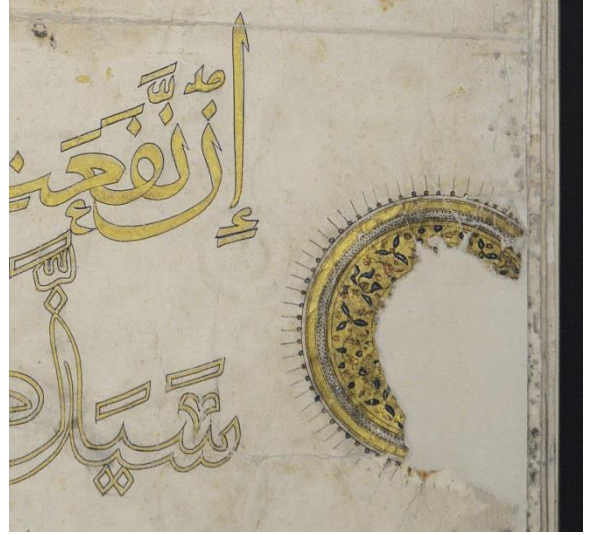 إِن نَّفَعَتِ
سَيَذَّكَّرُ